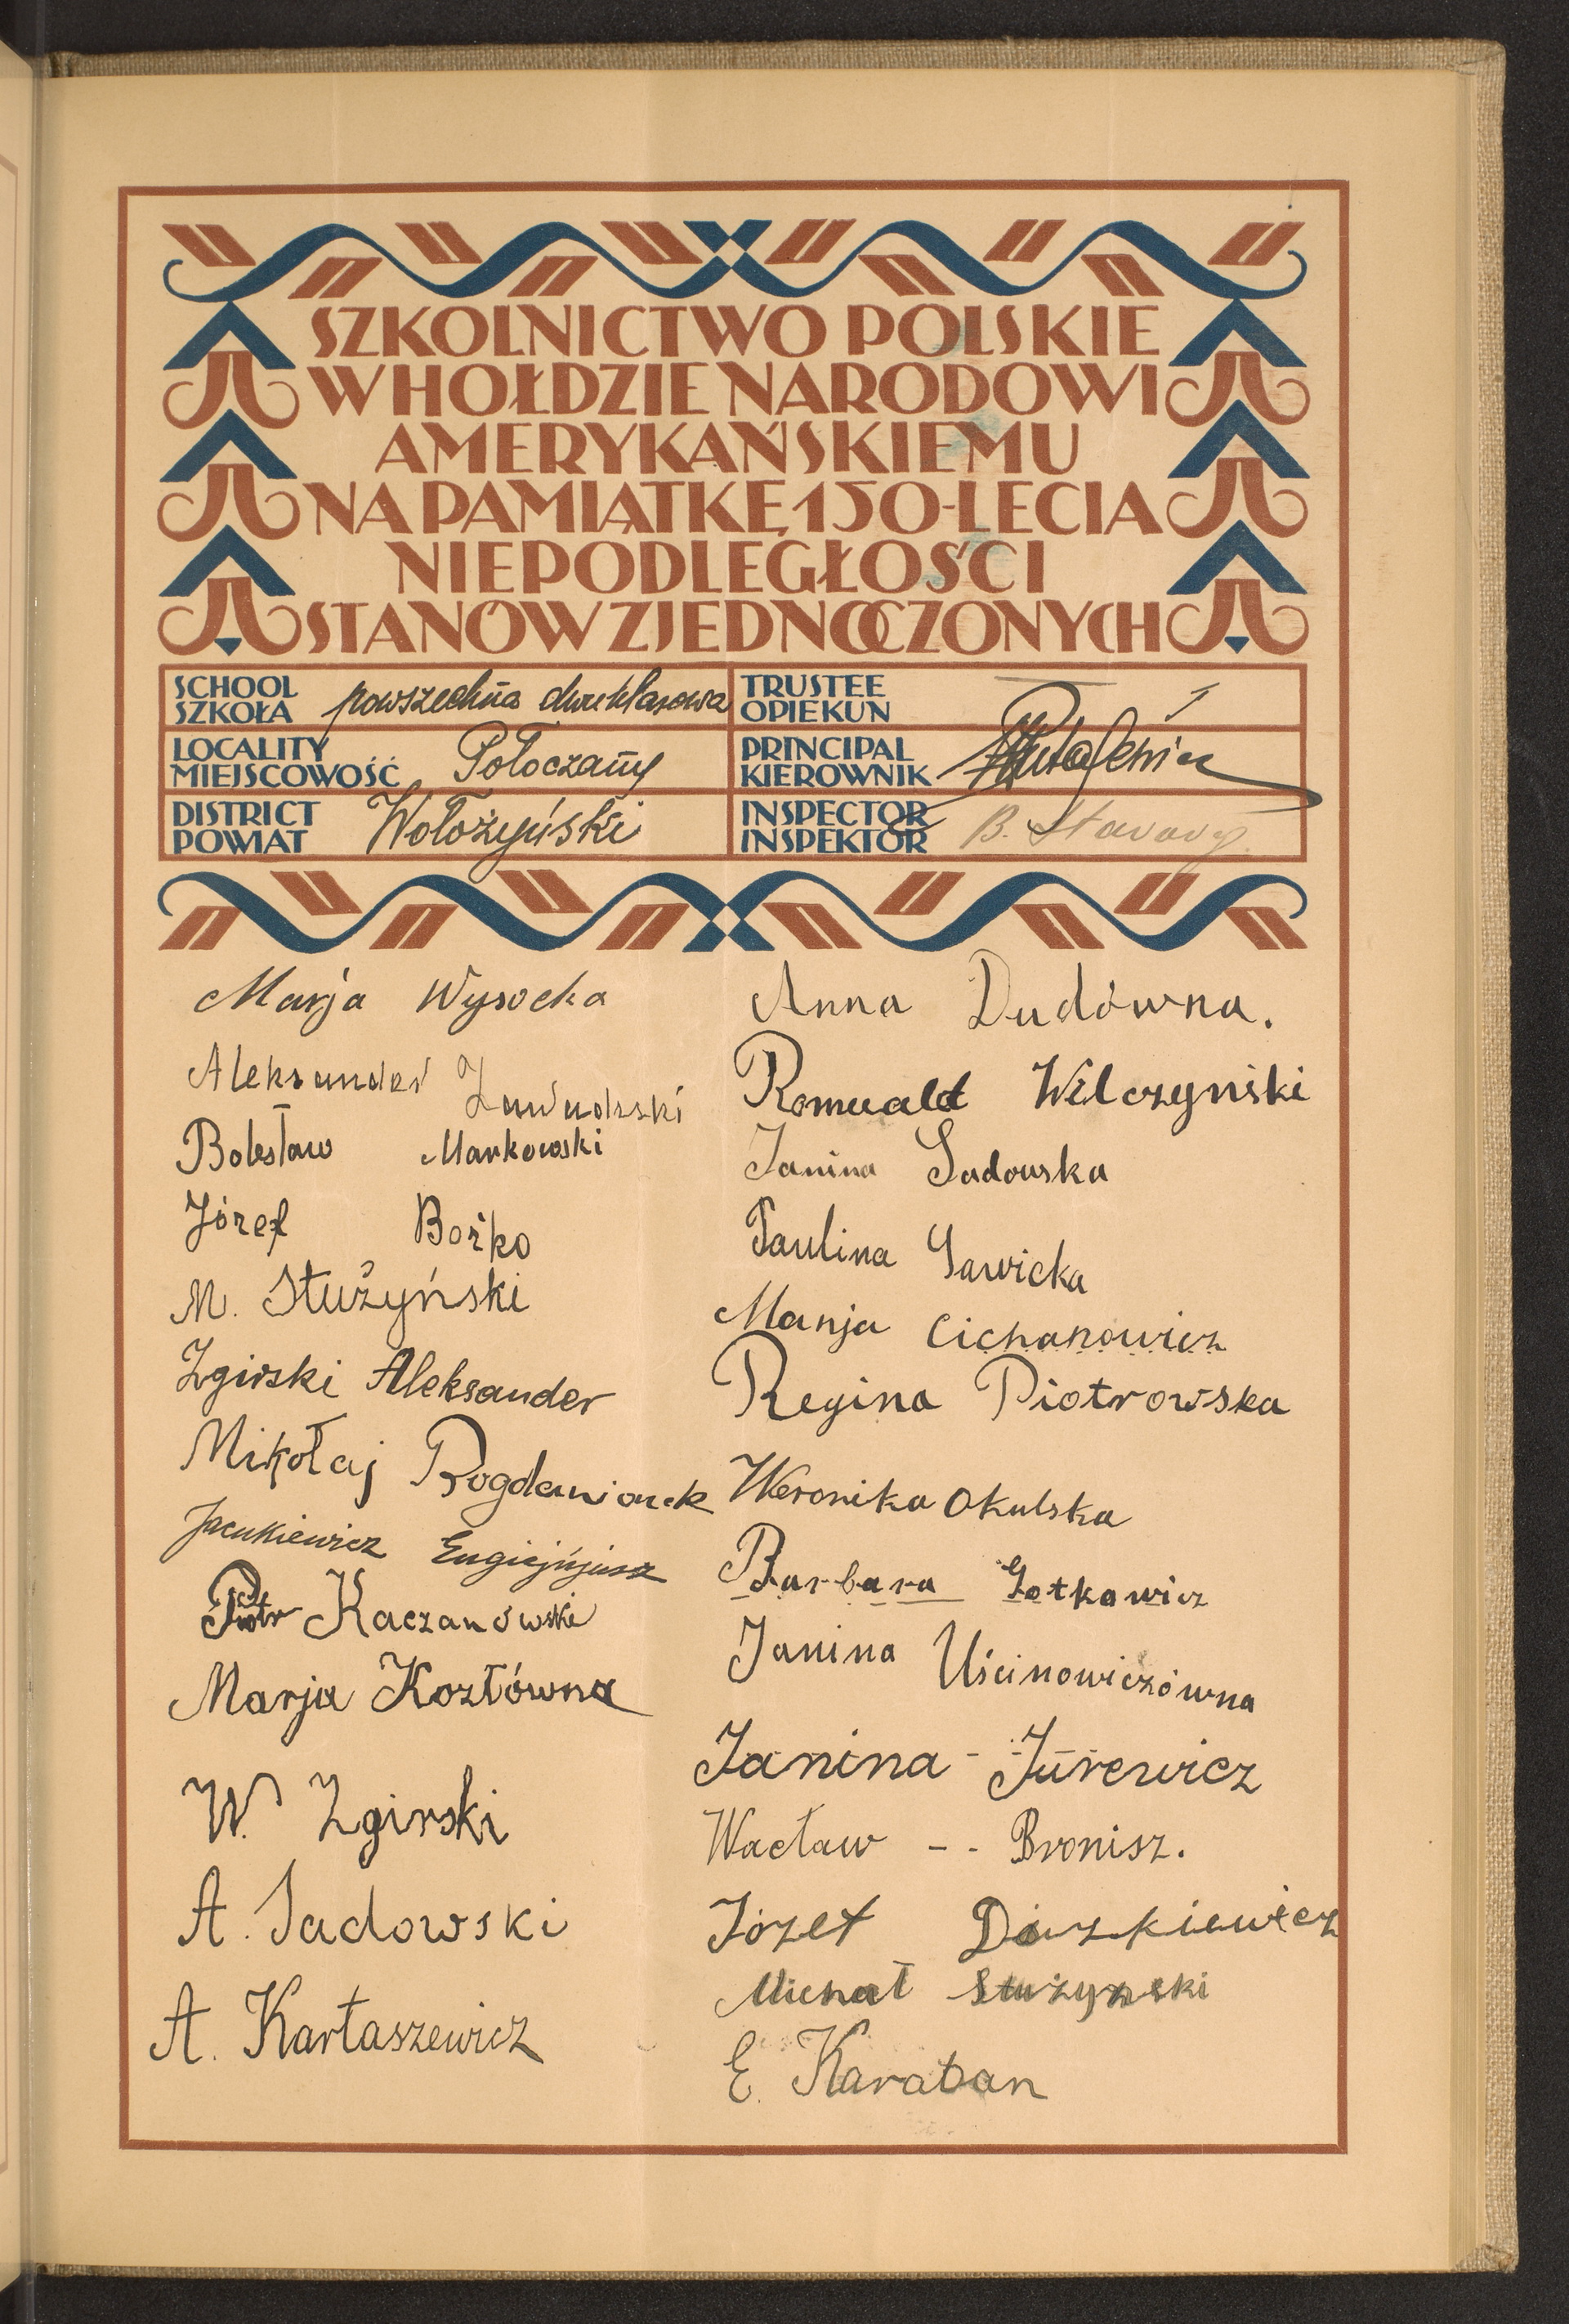 SZKOLNICTWO POLSKIE
W HOŁDZIE NARODOWI
AMERYKAŃSKIEMU
NA PAMIĄTKĘ 150-LECIA
NIEPODLEGŁOŚCI
STANÓW ZJEDNOCZONYCH
SCHOOL
SZKOŁA powszechna dwuklasowa
LOCALITY
MIEJSCOWOŚĆ Połoczany
DISTRICT
POWIAT Wołożyński
TRUSTEE
OPIEKUN
PRINCIPAL
KIEROWNIK
INSPECTOR
INSPEKTOR B.
Marja Wysocka
Aleksander
Bolesław Markowski
Józef Bożko
M. Stużyński
Zgirski Aleksander
Mikołaj
Jacukiewicz
Piotr Kaczanowski
Marja Kozłówna
W. Zgirski
A. Sadowski
A. Kartaszewicz
Anna Dudówna.
Romuald Wilczyński
Janina Sadowska
Paulina Sawicka
Marija Cichanowicz
Regina Piotrowska
Weronika Okulska
Barbara Gotkowicz
Janina Uścinowiczówna
Janina - Jurewicz
Wacław - - Bronisz.
Józef Daszkiewicz
Michał Stużynski
E. Karaban